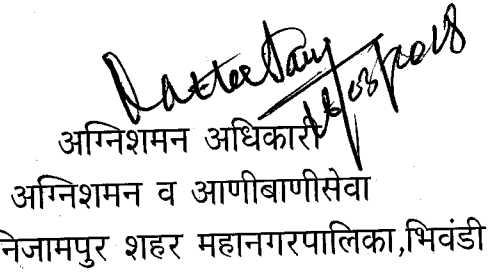 अग्निशमन अधिकारी
अग्निशमन व आणीबाणीसेवा
निजामपुर शहर महानगरपालिका,भिवंडी